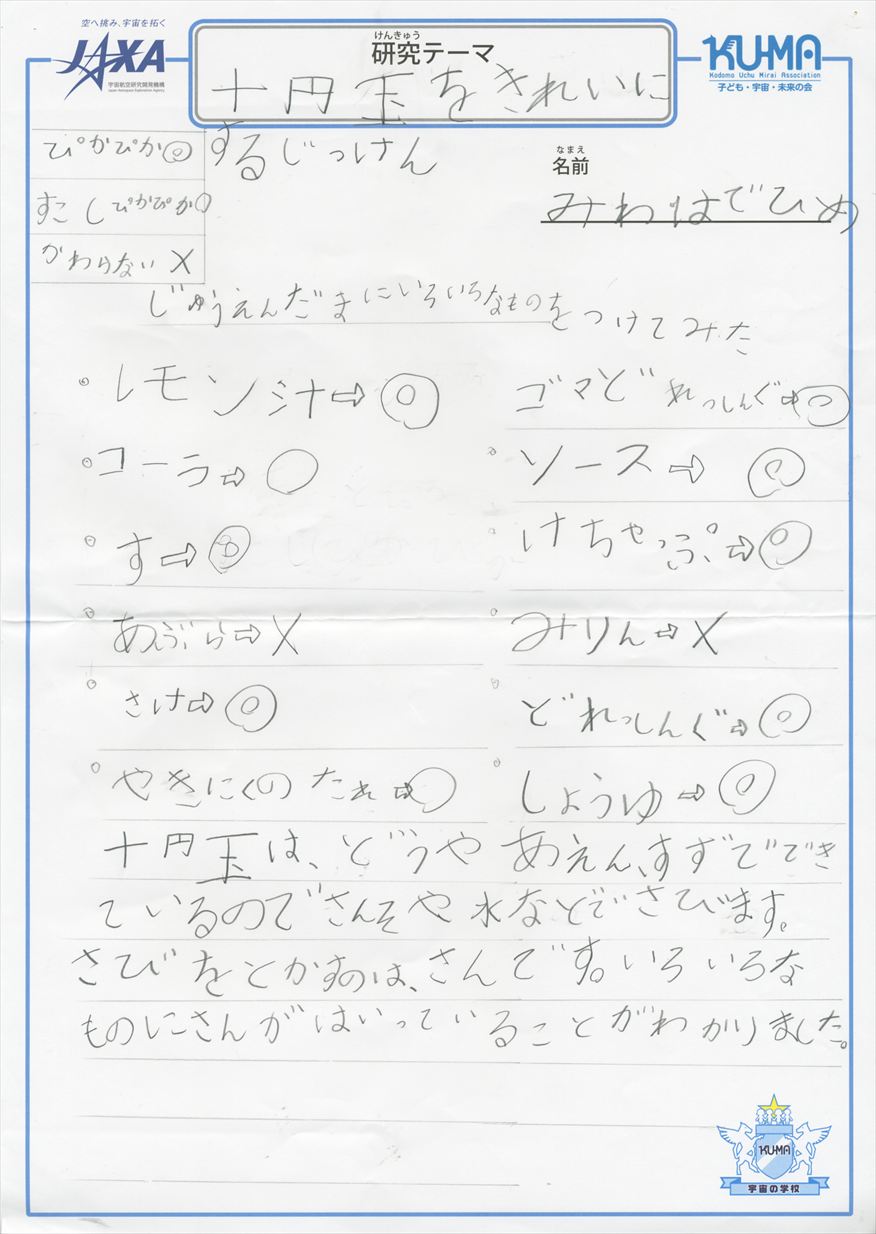 空へ挑み、宇宙を拓く
JAXA
宇宙航空研究開発機構
Japan Aerospace Exploration Agency
けんきゅう
研究テーマ
十円玉をきれいに
するじっけん
KU-MA
Kodomo Uchu Mirai Association
子ども・宇宙・未来の会
なまえ
名前
みわはでひめ
ぴかぴか◎
すこしぴかぴか○
かわらない×
じゅうえんだまにいろいろなものをつけてみた
レモン汁⇨◎
ゴマどれっしんぐ⇨◎
コーラ⇨○
ソース⇨◎
す⇨◎
けちゃっぷ⇨◎
あぶら⇨×
みりん⇨×
さけ⇨◎
どれっしんぐ⇨◎
やきにくのたれ⇨○
しょうゆ⇨◎
十円玉は、どうやあえん、すずででき
ているのでさんそや水などでさびます。
さびをとかすのは、さんです。いろいろな
ものにさんがはいっていることがわかりました。
KU-MA
宇宙の学校